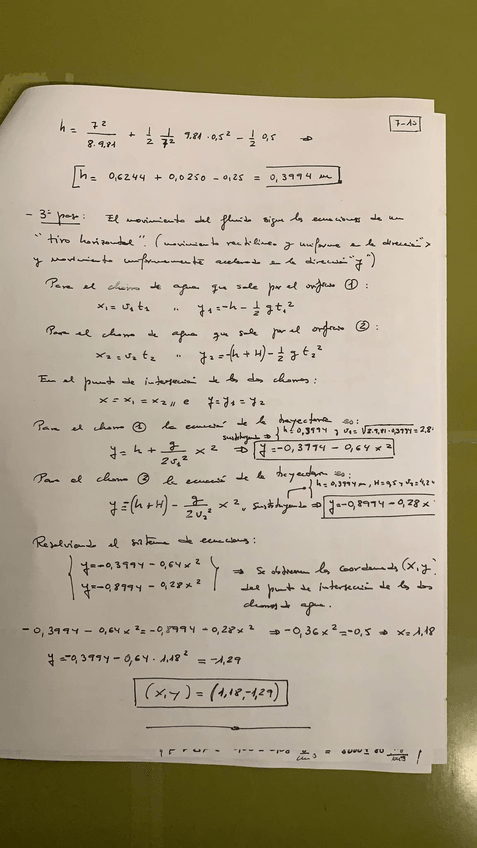 7-13
h = 7² / 8·9,81 + 1/2 1/7² 9,81·0,5² − 1/2 0,5 ⇒
h = 0,6244 + 0,0250 − 0,25 = 0,3994 m
- 3º paso: El movimiento del fluido sigue las ecuaciones de un
"tiro horizontal". (movimiento rectilíneo y uniforme en la dirección x
y movimiento uniformemente acelerado en la dirección "y")
Para el chorro de agua que sale por el orificio ①:
x₁ = v₁ t₂ " y₁ = −h − 1/2 g t₁²
Para el chorro de agua que sale por el orificio ②:
x₂ = v₂ t₂ " y₂ = −(h + H) − 1/2 g t₂²
En el punto de intersección de los dos chorros:
x = x₁ = x₂ ,, e y = y₁ = y₂
Para el chorro ① la ecuación de la trayectoria es:
sustituyendo h = 0,3994 y v₁ = √2·9,81·0,3994 = 2,8
y = h + g/2v₁² x² ⇒ y = −0,3994 − 0,64 x²
Para el chorro ② la ecuación de la trayectoria es:
h = 0,3994 m, H = 0,5 y
y = −(h + H) − g/2v₂² x² ,, sustituyendo ⇒ y = −0,8994 − 0,28 x
Resolviendo el sistema de ecuaciones:
y = −0,3994 − 0,64 x²
y = −0,8994 − 0,28 x²
⇒ Se obtienen las coordenadas (x, y)
del punto de intersección de los dos
chorros de agua.
−0,3994 − 0,64 x² = −0,8994 − 0,28 x² ⇒ −0,36 x² = −0,5 ⇒ x = 1,18
y = −0,3994 − 0,64 · 1,18² = −1,29
(x, y) = (1,18, −1,29)